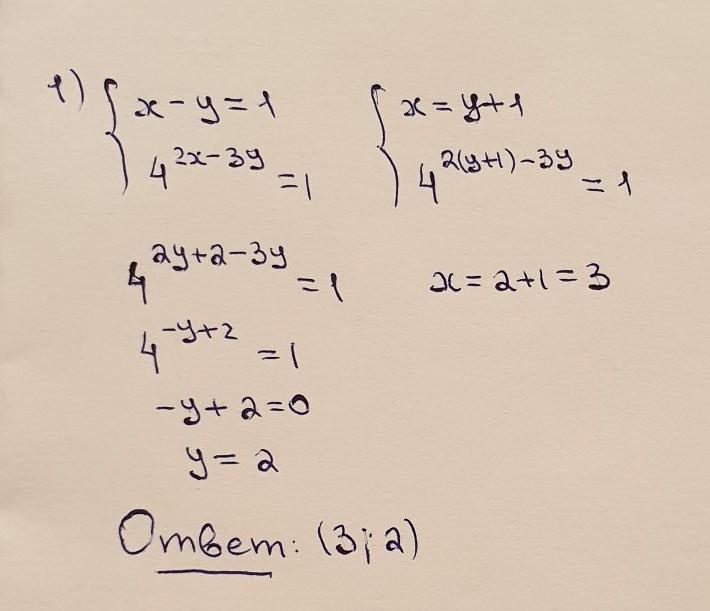 1) { x - y = 1 { x = y + 1
4^{2x-3y} = 1 4^{2(y+1)-3y} = 1
4^{2y+2-3y} = 1 x = 2+1 = 3
4^{-y+2} = 1
-y + 2 = 0
y = 2
Ответ: (3; 2)